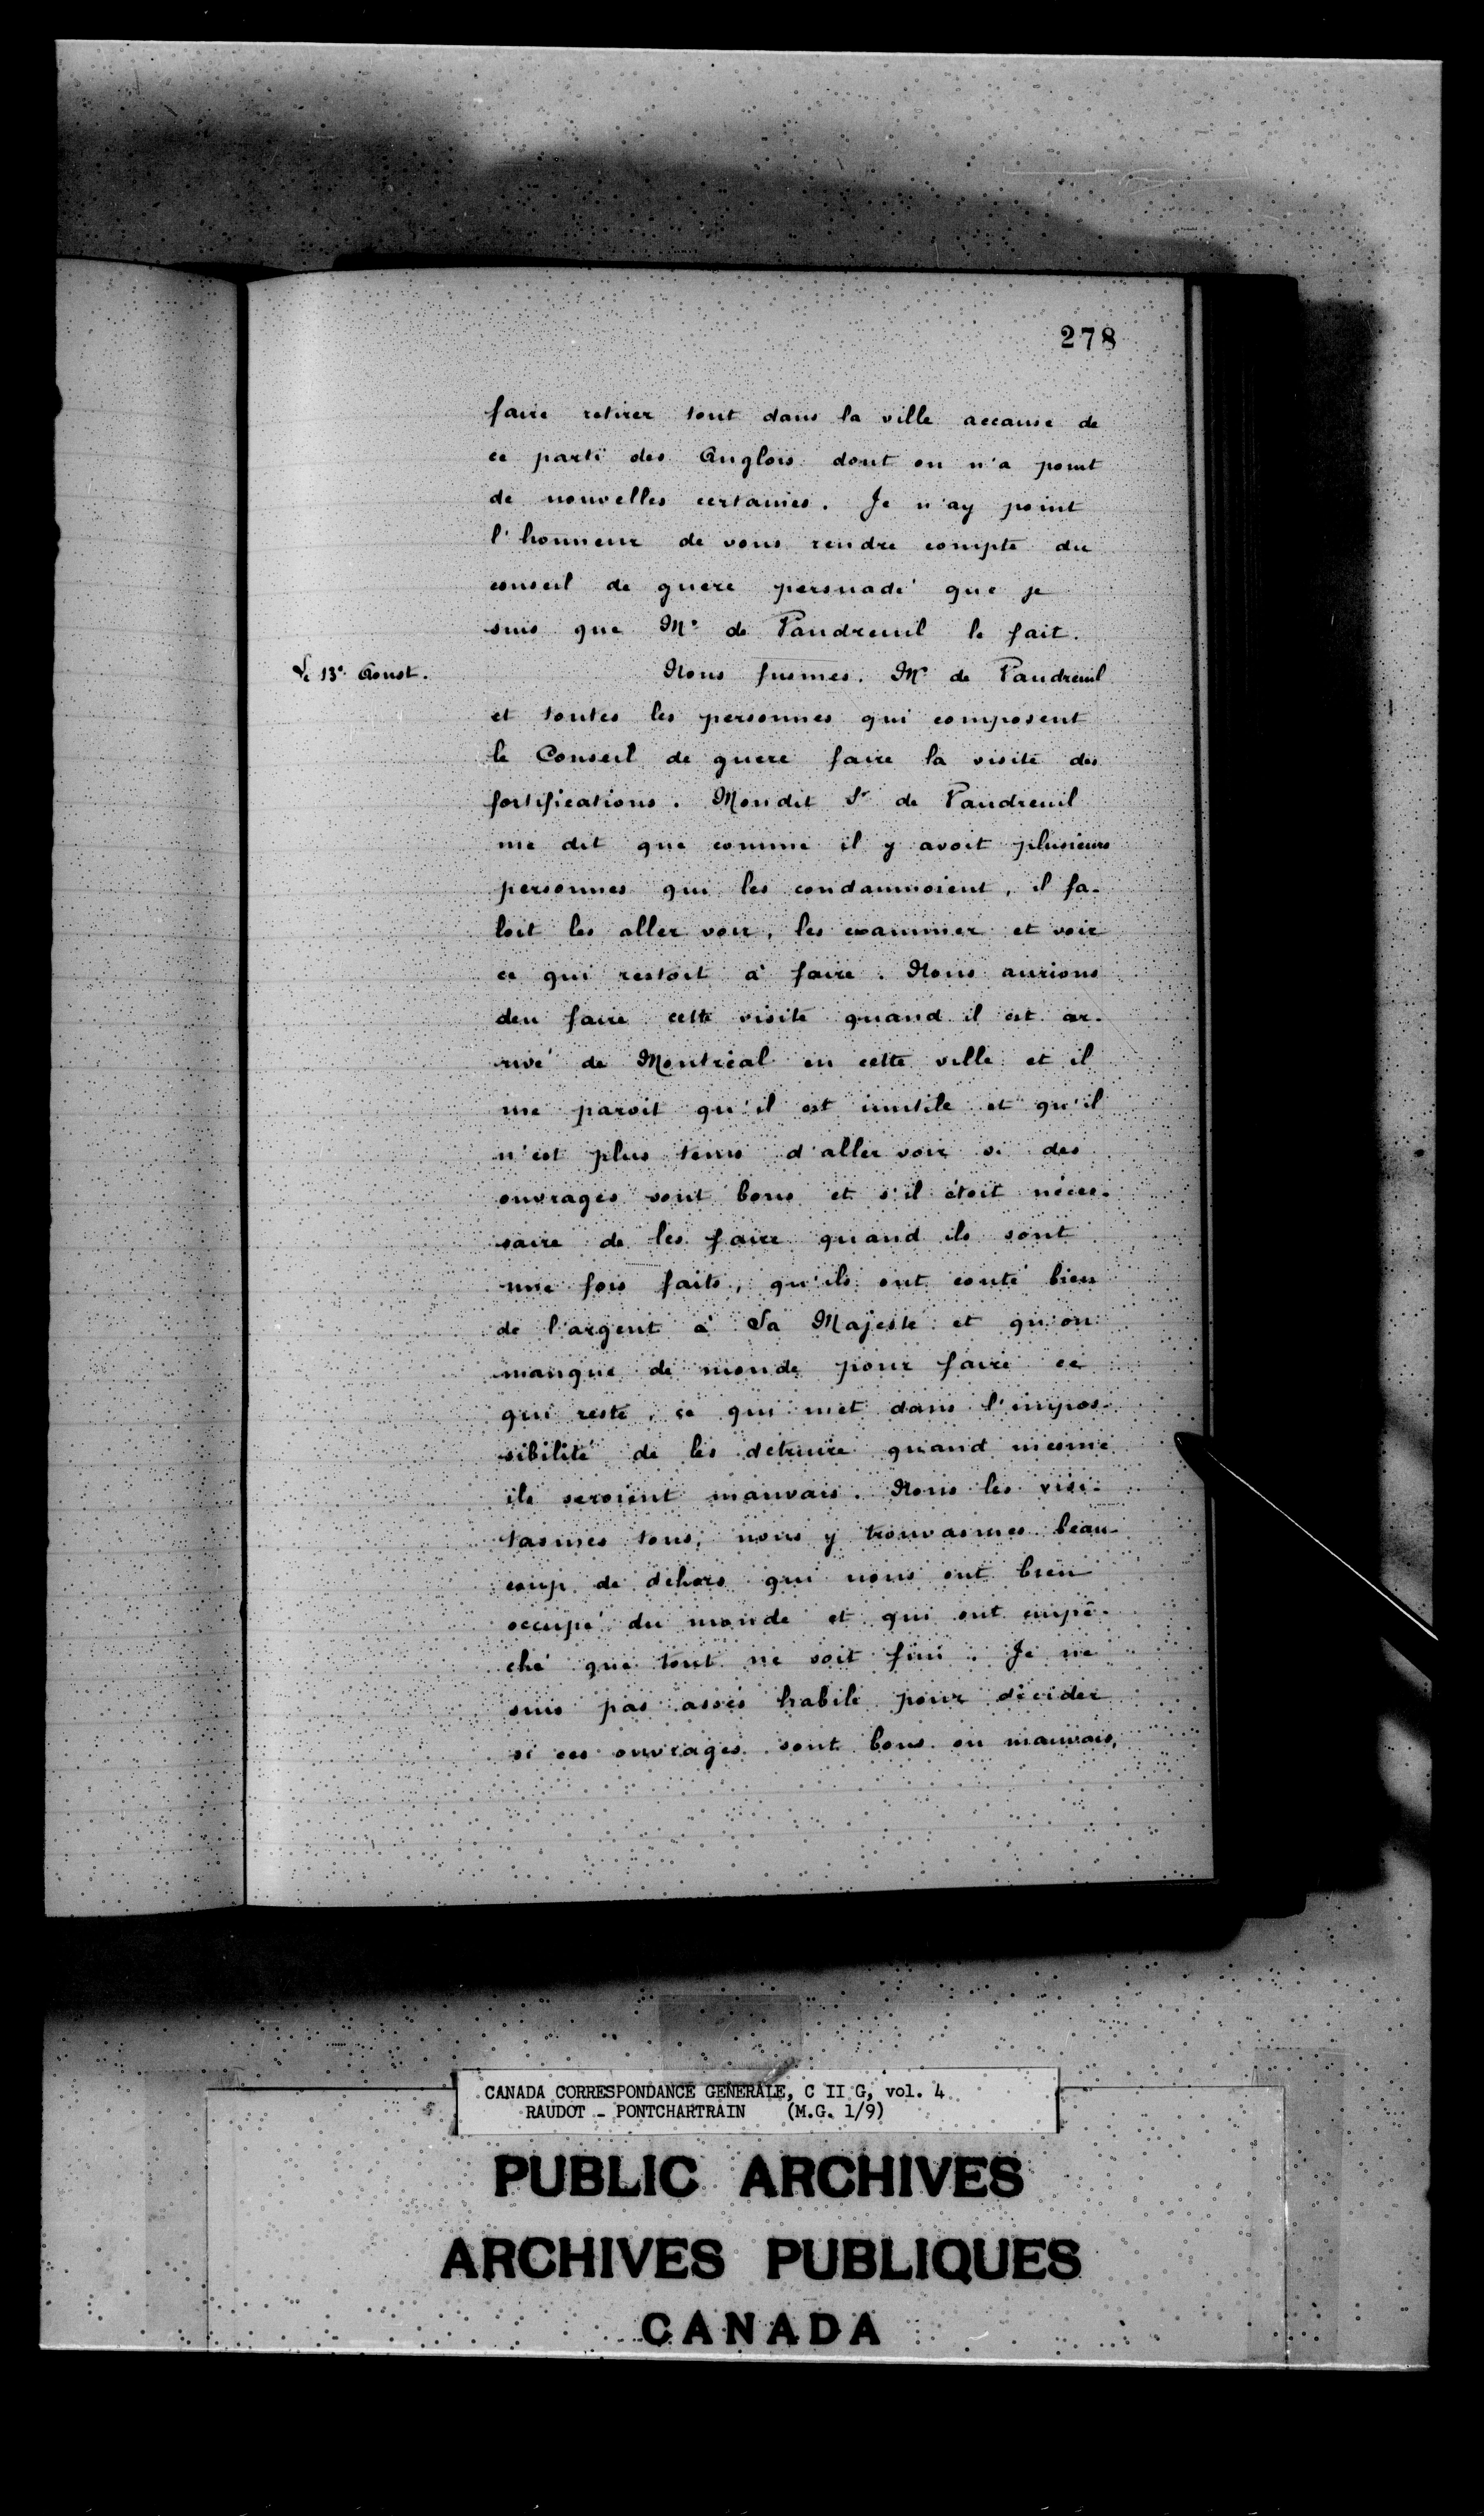 278
faire retirer tout dans la ville accause de
ce parti des Anglois dont on n'a point
de nouvelles certaines. Je n'ay point
l'honneur de vous rendre compte du
conseil de guere persuadé que je
suis que Mr de Vaudreuil le fait.
Le 13e Aoust.
Nous fusmes. Mr de Vaudreuil
et toutes les personnes qui composent
le Conseil de guere faire la visite des
fortifications. Mondit Sr de Vaudreuil
me dit que comme il y avoit plusieurs
personnes qui les condamnoient, il fa-
loit les aller voir, les examiner et voir
ce qui restoit à faire. Nous aurions
deu faire cette visite quand il est ar-
rivé de Montréal en cette ville et il
me paroit qu'il est inutile et qu'il
n'est plus tems d'aller voir si des
ouvrages sont bons et s'il étoit néces-
saire de les faire quand ils sont
une fois faits, qu'ils ont couté bien
de l'argent à Sa Majesté et qu'on
manque de monde pour faire ce
qui reste, ce qui met dans l'impos-
sibilité de les détruire quand mesme
ils seroient mauvais. Nous les visi-
tasmes tous, nous y trouvasmes beau-
coup de dehors qui nous ont bien
occupé du monde et qui ont empê-
ché que tout ne soit fini. Je ne
suis pas assés habile pour décider
si ces ouvrages sont bons ou mauvais,
CANADA CORRESPONDANCE GENERALE, C II G, vol. 4
RAUDOT - PONTCHARTRAIN (M.G. 1/9)
PUBLIC ARCHIVES
ARCHIVES PUBLIQUES
CANADA